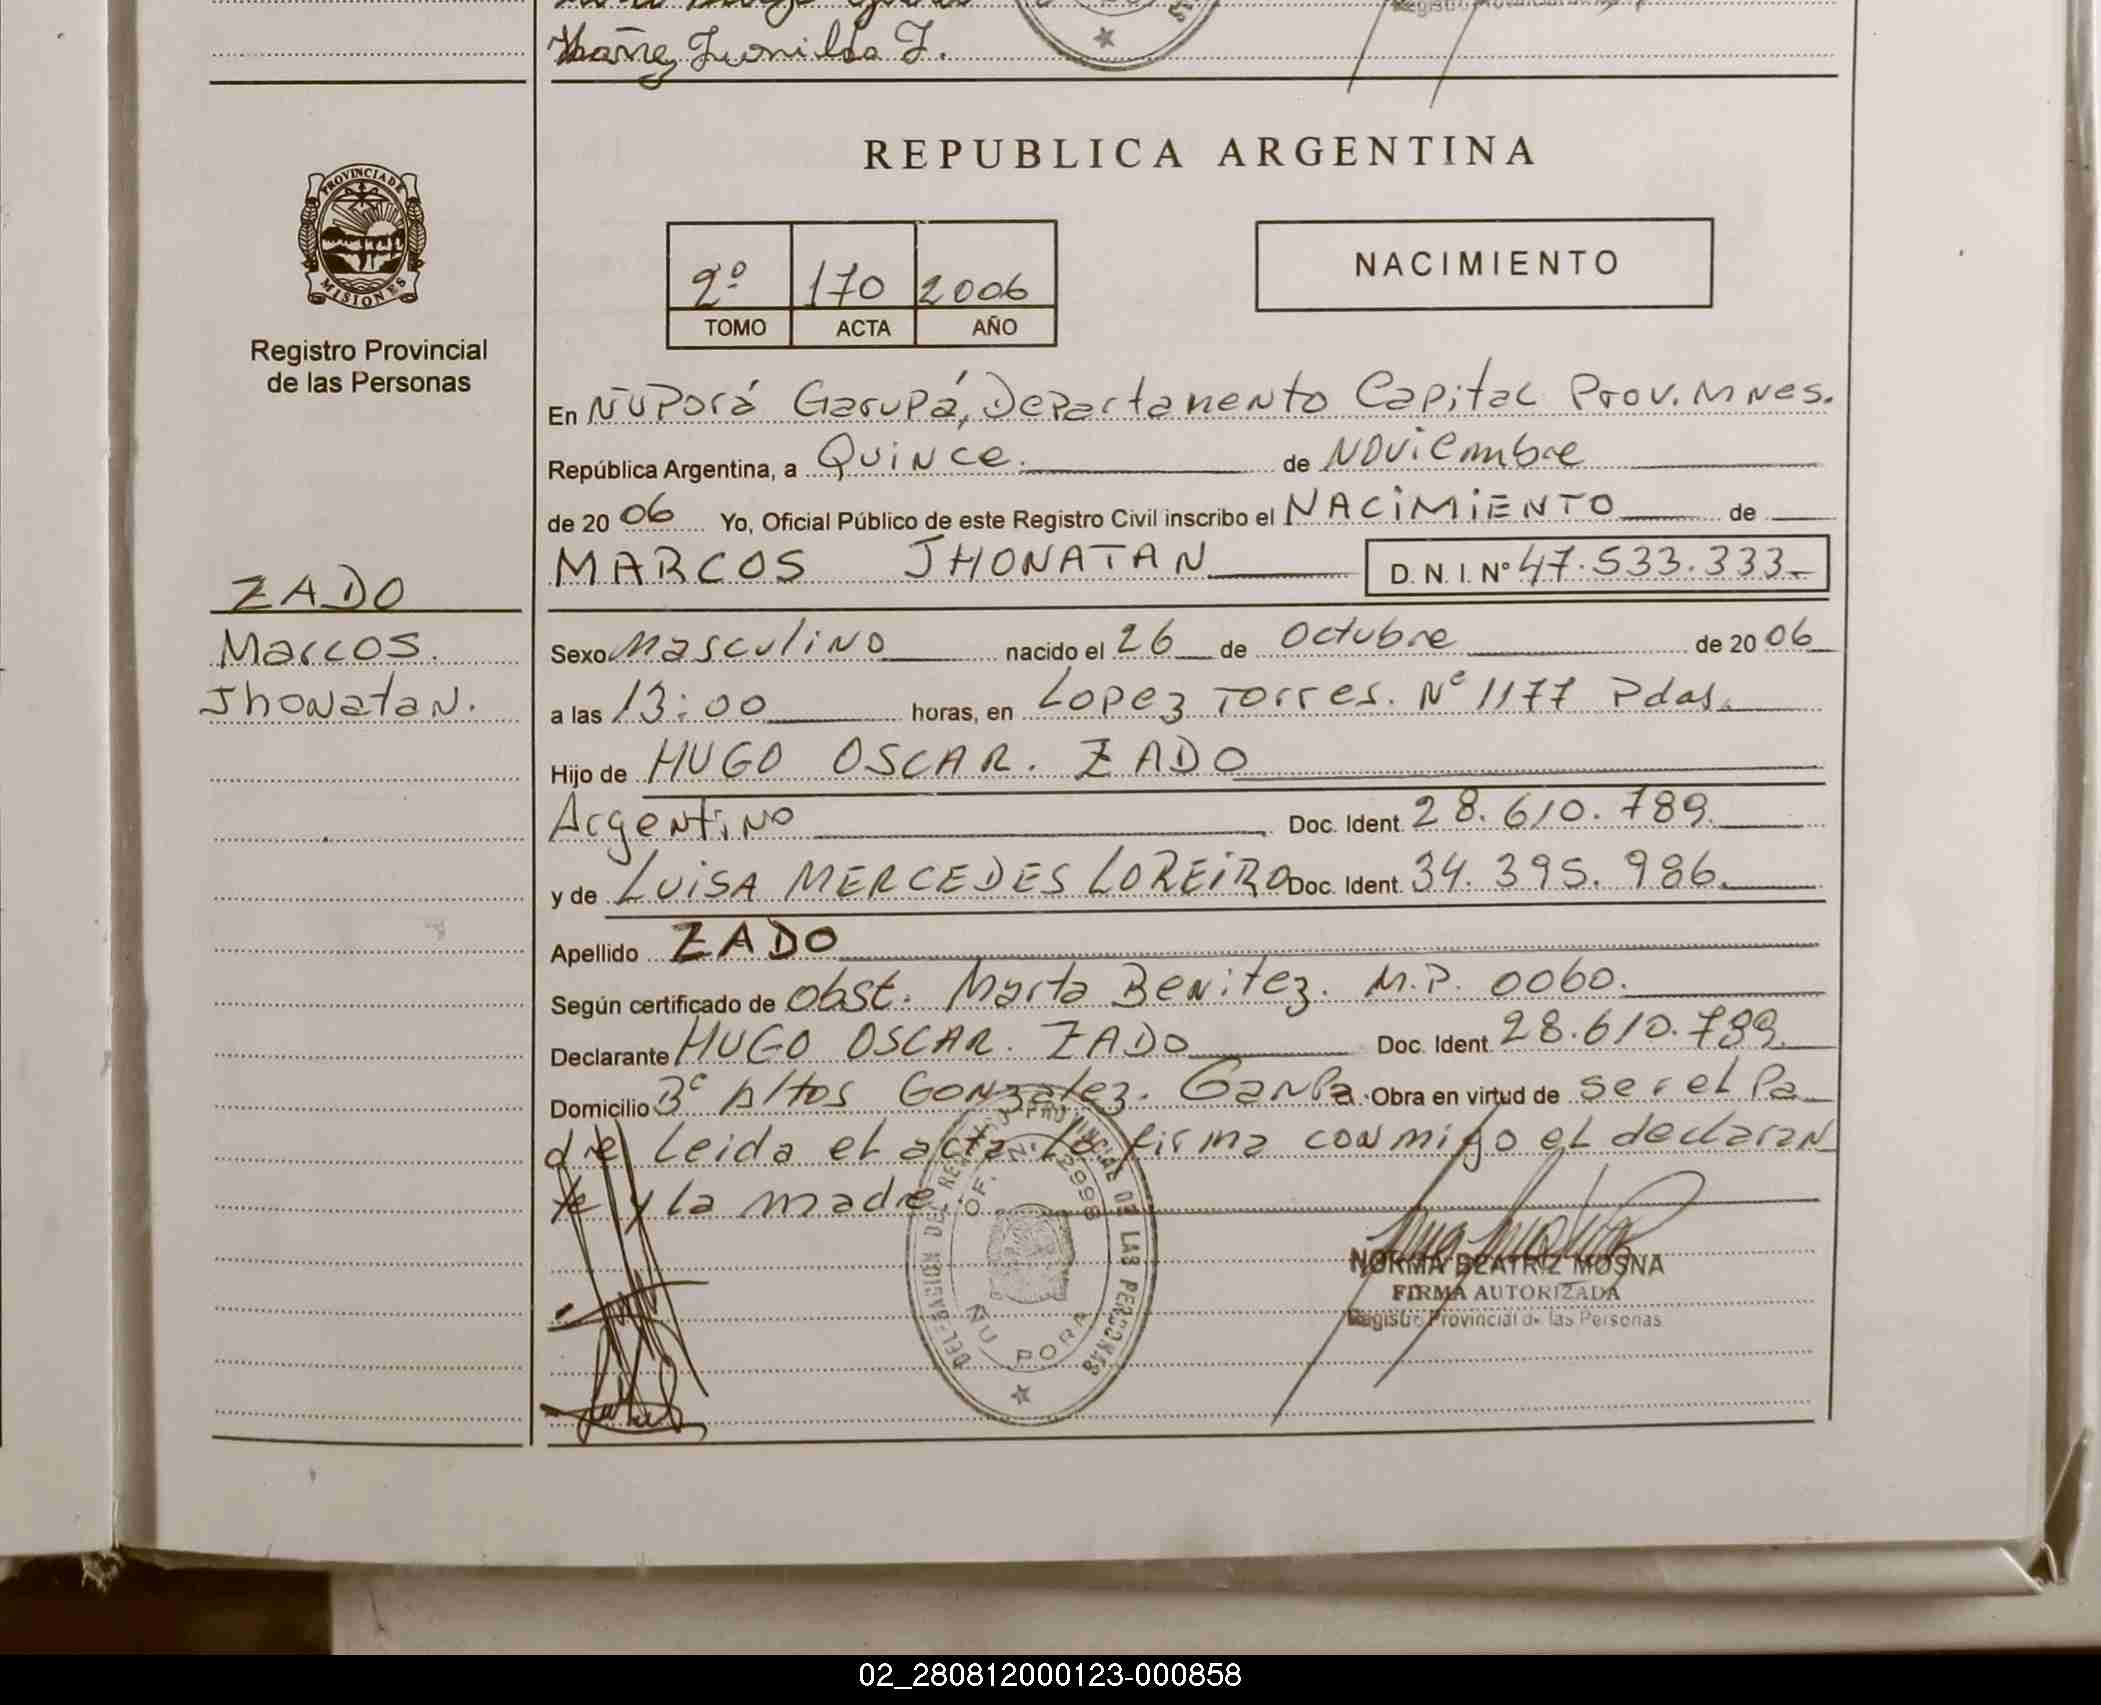 Ibañez Lunilda J.
REPUBLICA ARGENTINA
PROVINCIA DE
MISIONES
Registro Provincial
de las Personas
2º 170 2006
TOMO ACTA AÑO
NACIMIENTO
En ÑuPorá GaruPá, Departamento Capital Prov. MNes.
República Argentina, a Quince. de Noviembre
de 20 06 Yo, Oficial Público de este Registro Civil inscribo el NACiMiENTO de
MARCOS JHONATAN D. N. I. Nº 47.533.333
ZADO
Marcos.
Jhonatan.
Sexo Masculino nacido el 26 de Octubre de 20 06
a las 13:00 horas, en Lopez Torres. Nº 1177 Pdas.
Hijo de HUGO OSCAR. ZADO
Argentino Doc. Ident. 28.610.789.
y de LUiSA MERCEDES LOREiRO Doc. Ident. 34.395.986.
Apellido ZADO
Según certificado de obst. Marta Benitez. M.P. 0060.
Declarante HUGO OSCAR. ZADO Doc. Ident. 28.610.789.
Domicilio Bº Altos Gonzalez. GaruPa. Obra en virtud de ser el Pa
dre Leida el acta la firma conmigo el declaran
te y la madre.
DELEGACION DEL REGISTRO PROVINCIAL DE LAS PERSONAS
OF. Nº 2998
ÑU PORA
NORMA BEATRIZ MOSNA
FIRMA AUTORIZADA
Registro Provincial de las Personas
02_280812000123-000858